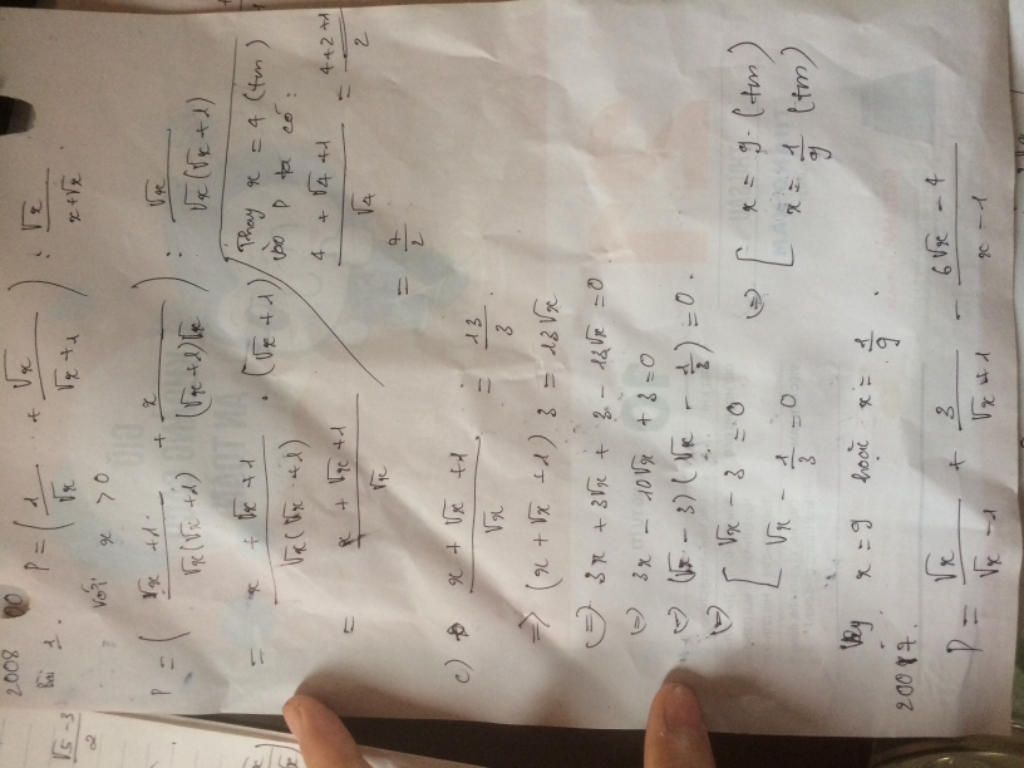 2008
Bài 1.
P = ( 1/√x + √x/(√x+1) ) : √x/(x+√x) .
Với x > 0
P = ( (√x+1)/(√x(√x+1)) + x/((√x+1)√x) ) : √x/(√x(√x+1))
= (x + √x + 1)/(√x(√x+1)) . (√x+1)
= (x + √x + 1)/√x
Thay x = 4 (tm)
vào P ta có:
(4 + √4 + 1)/√4 = (4+2+1)/2
= 7/2
c) (x + √x + 1)/√x = 13/3
=> (x + √x + 1) 3 = 13√x
(=) 3x + 3√x + 3 - 13√x = 0
(=) 3x - 10√x + 3 = 0
(=) (√x - 3)(√x - 1/3) = 0.
(=) [ √x - 3 = 0 (=) [ x = 9 (tm)
√x - 1/3 = 0 x = 1/9 (tm)
Vậy x = 9 hoặc x = 1/9 .
2007.
P = √x/(√x - 1) + 3/(√x+1) - (6√x - 4)/(x - 1)
√5 - 3
2